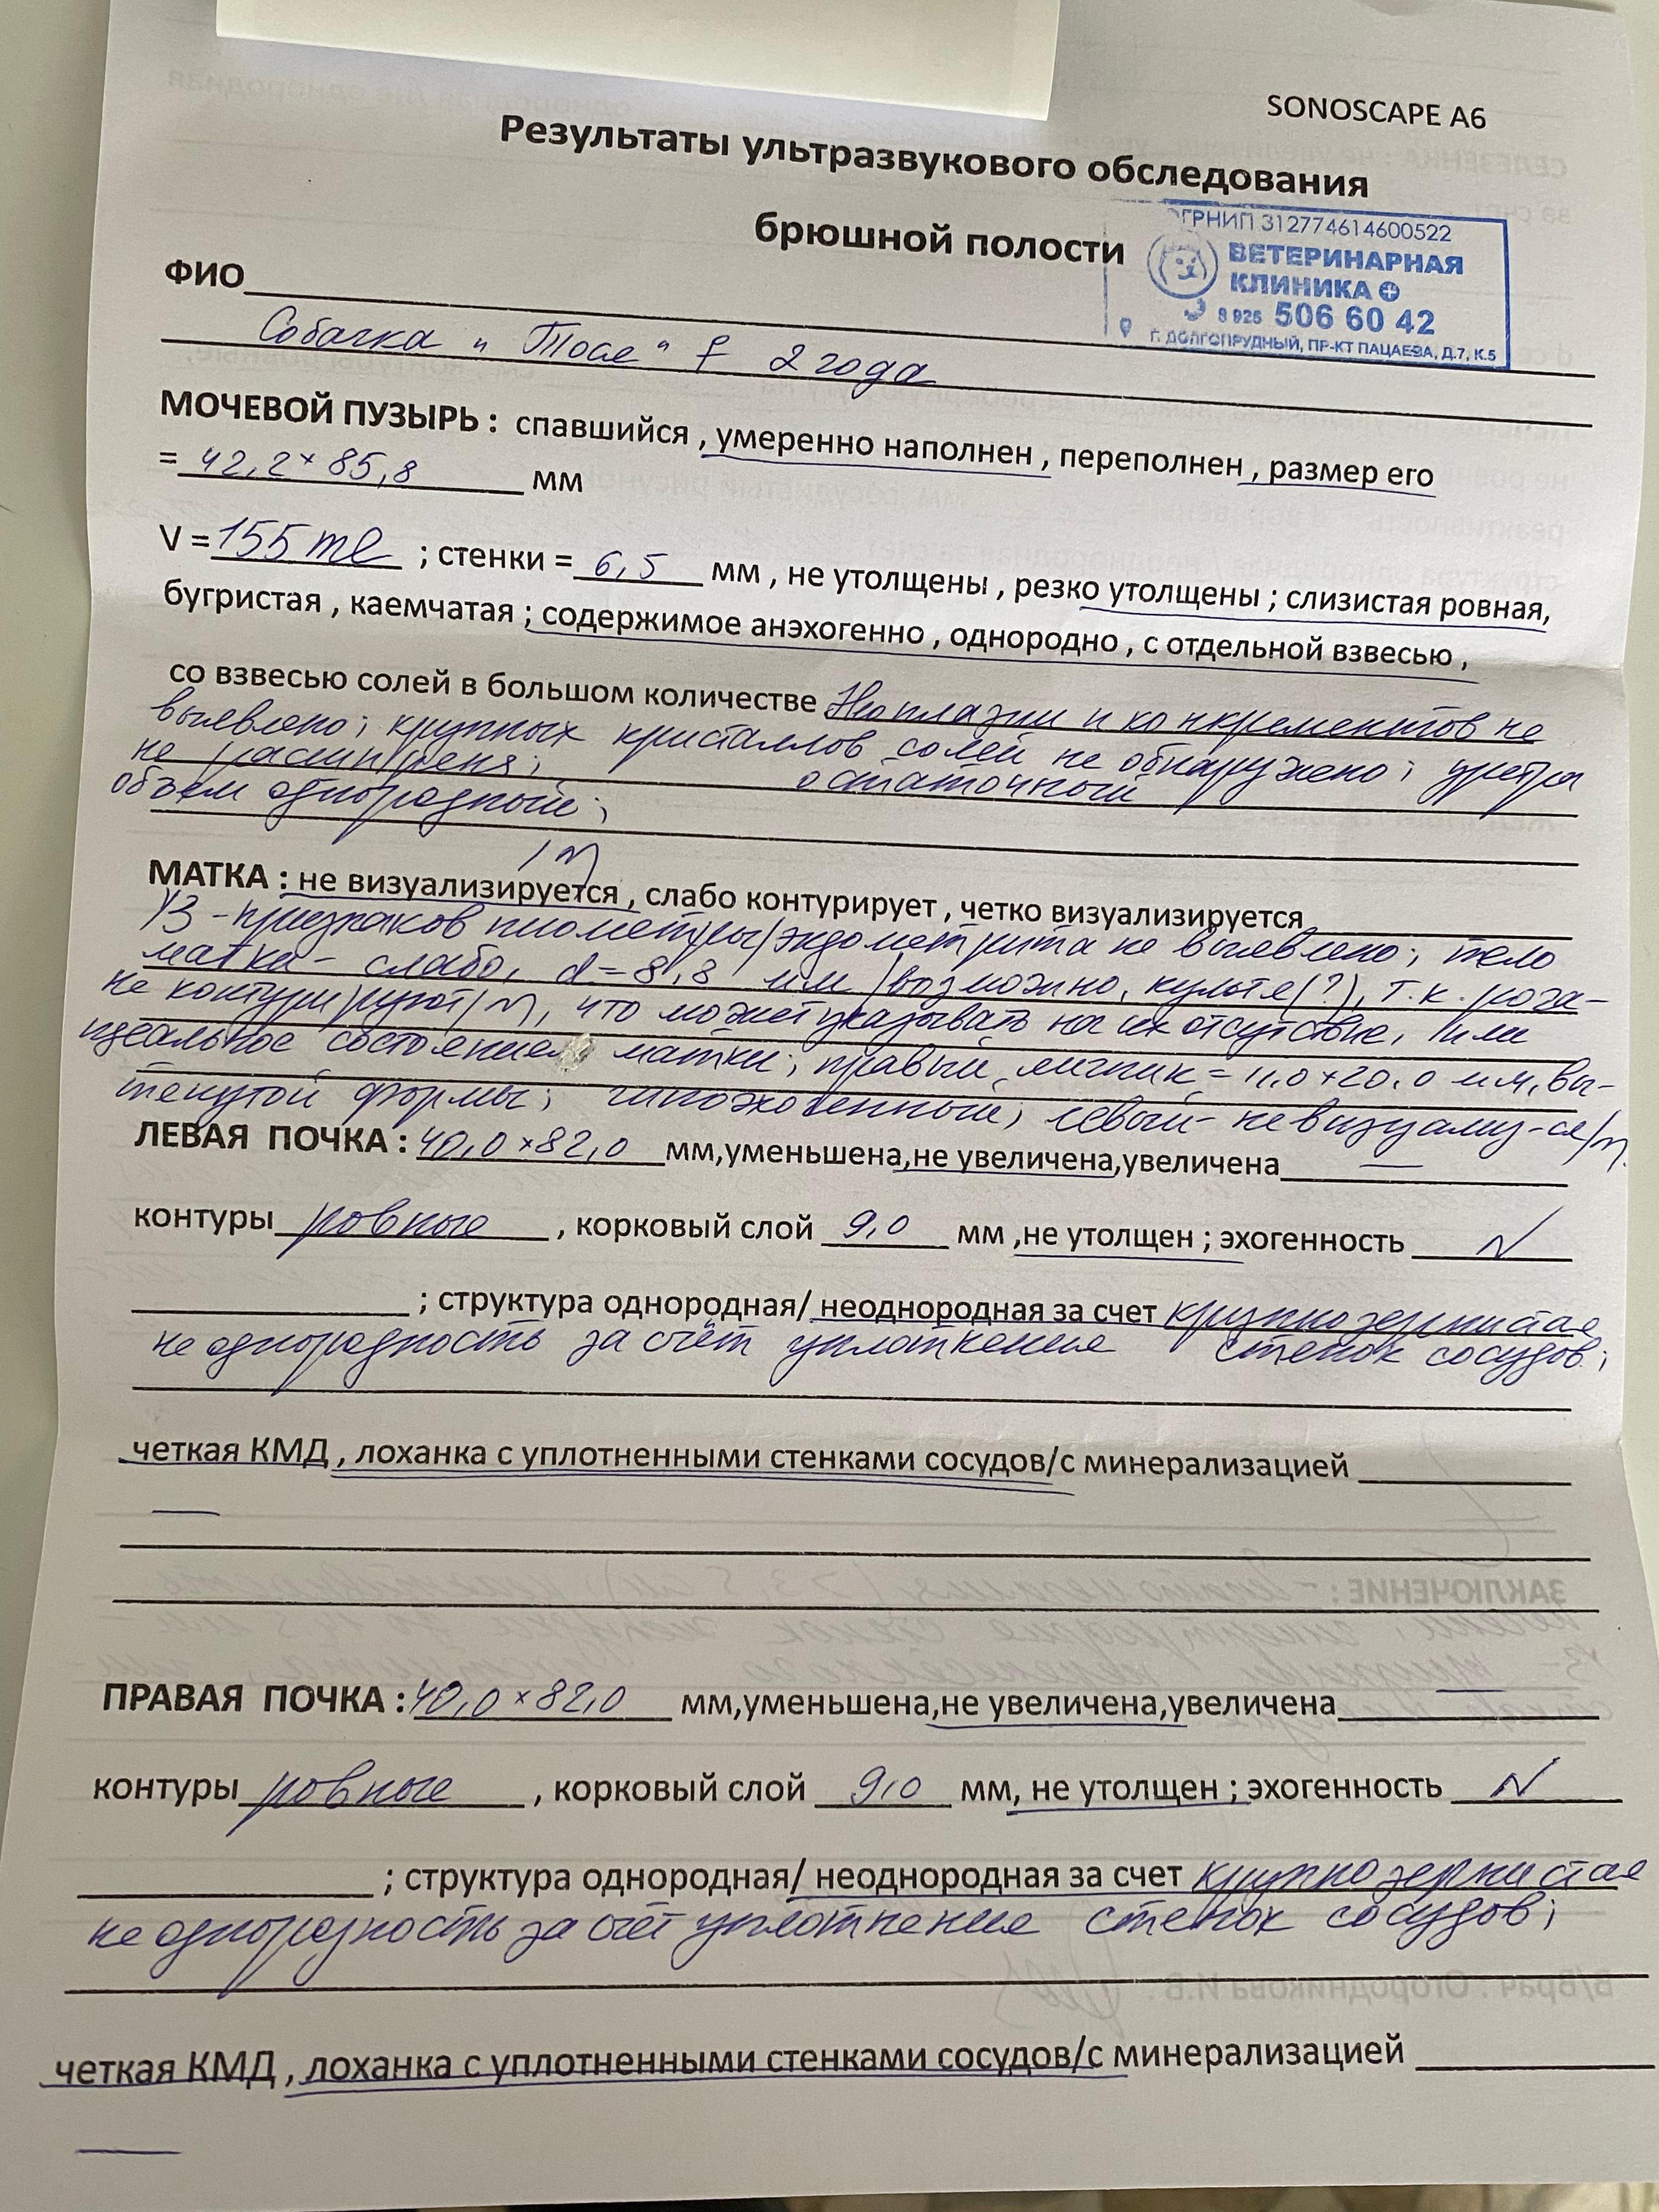 SONOSCAPE A6
Результаты ультразвукового обследования
брюшной полости
ОГРНИП 312774614600522
ВЕТЕРИНАРНАЯ
КЛИНИКА
8 925 506 60 42
Г. ДОЛГОПРУДНЫЙ, ПР-КТ ПАЦАЕВА, Д.7, К.5
ФИО
Собачка "Тося" f 2 года
МОЧЕВОЙ ПУЗЫРЬ : спавшийся , умеренно наполнен , переполнен , размер его
= 42,2 × 85,8 мм
V = 155 ml ; стенки = 6,5 мм , не утолщены , резко утолщены ; слизистая ровная,
бугристая , каемчатая ; содержимое анэхогенно , однородно , с отдельной взвесью ,
со взвесью солей в большом количестве Неоплазии и конкрементов не
выявлено; крупных кристаллов солей не обнаружено; уретра
не расширена; остаточный
объем однородный;
МАТКА : не визуализируется , слабо контурирует , четко визуализируется
УЗ-признаков пиометры/эндометрита не выявлено; тело
матки - слабо, d = 8,8 мм /возможно, культя(?), т.к. рога-
не контурируют/m, что может указывать на их отсутствие, /или
идеальное состояние матки; правый яичник = 11,0 × 20,0 мм, вы-
тянутой формы; гипоэхогенный; левый - не визуализ-ся/m.
ЛЕВАЯ ПОЧКА : 40,0 × 82,0 мм,уменьшена,не увеличена,увеличена —
контуры ровные , корковый слой 9,0 мм ,не утолщен ; эхогенность N
; структура однородная/ неоднородная за счет крупнозернистая
неоднородность за счёт уплотнения стенок сосудов;
четкая КМД , лоханка с уплотненными стенками сосудов/с минерализацией
—
ПРАВАЯ ПОЧКА : 40,0 × 82,0 мм,уменьшена,не увеличена,увеличена —
контуры ровные , корковый слой 9,0 мм, не утолщен ; эхогенность N
; структура однородная/ неоднородная за счет крупнозернистая
неоднородность за счёт уплотнения стенок сосудов;
четкая КМД , лоханка с уплотненными стенками сосудов/с минерализацией
—